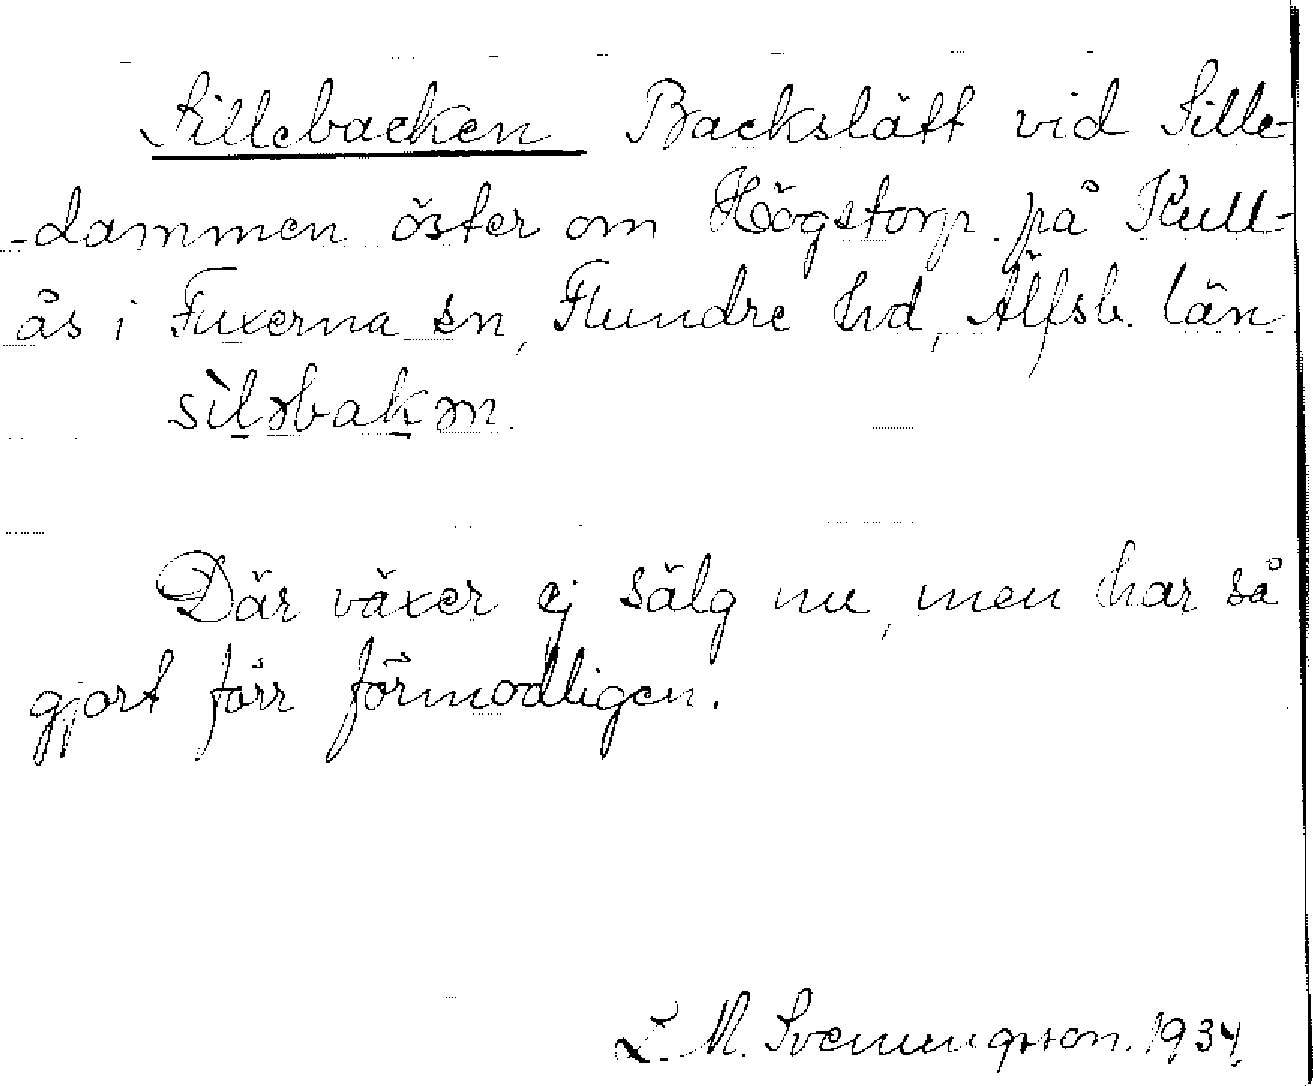 Sillebacken Backslätt vid Sille-
-dammen öster om Högstorp på Kull-
ås i Fuxerna sn, Flundre hd, Älfsb. län
sìləbakən.
Där växer ej sälg nu, men har så
gjort förr förmodligen.
L. M. Svenungsson. 1934